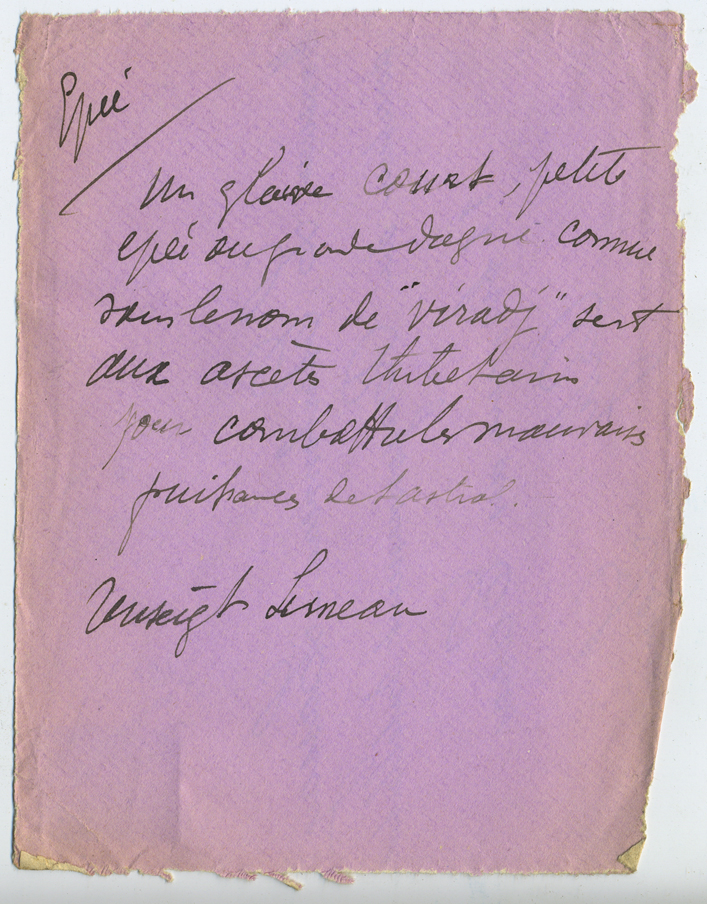 Epée
un glaive court, petite
epée ou grande dague connue
sous le nom de "viradj" sert
aux ascètes thibetains
pour combattre les mauvaises
puissances de l'astral.
renseigt